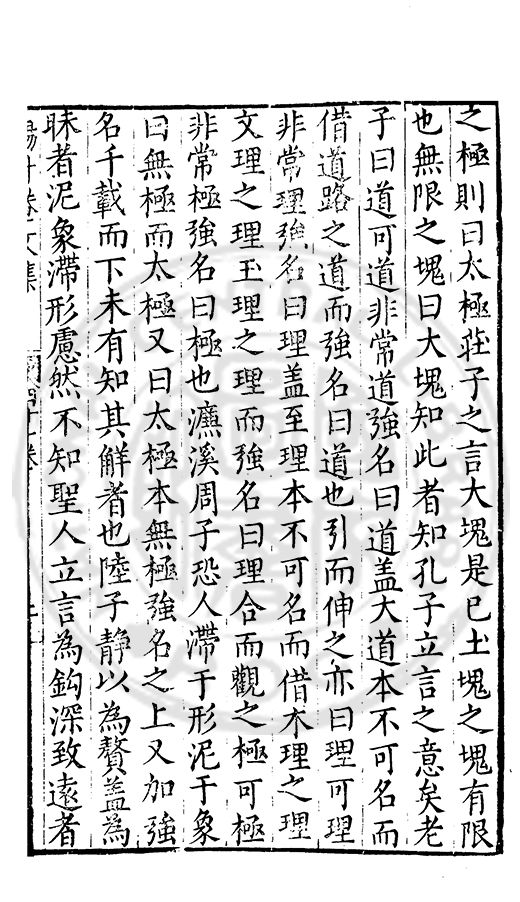 之極則曰太極莊子之言大塊是已土塊之塊有限
也無限之塊曰大塊知此者知孔子立言之意矣老
子曰道可道非常道強名曰道盖大道本不可名而
借道路之道而強名曰道也引而伸之亦曰理可理
非常理強名曰理盖至理本不可名而借木理之理
文理之理玉理之理而強名曰理合而觀之極可極
非常極強名曰極也濂溪周子恐人滯于形泥于象
曰無極而太極又曰太極本無極強名之上又加強
名千載而下未有知其解者也陸子靜以為贅盖為
昧者泥象滯形慮然不知聖人立言為鈎深致遠者